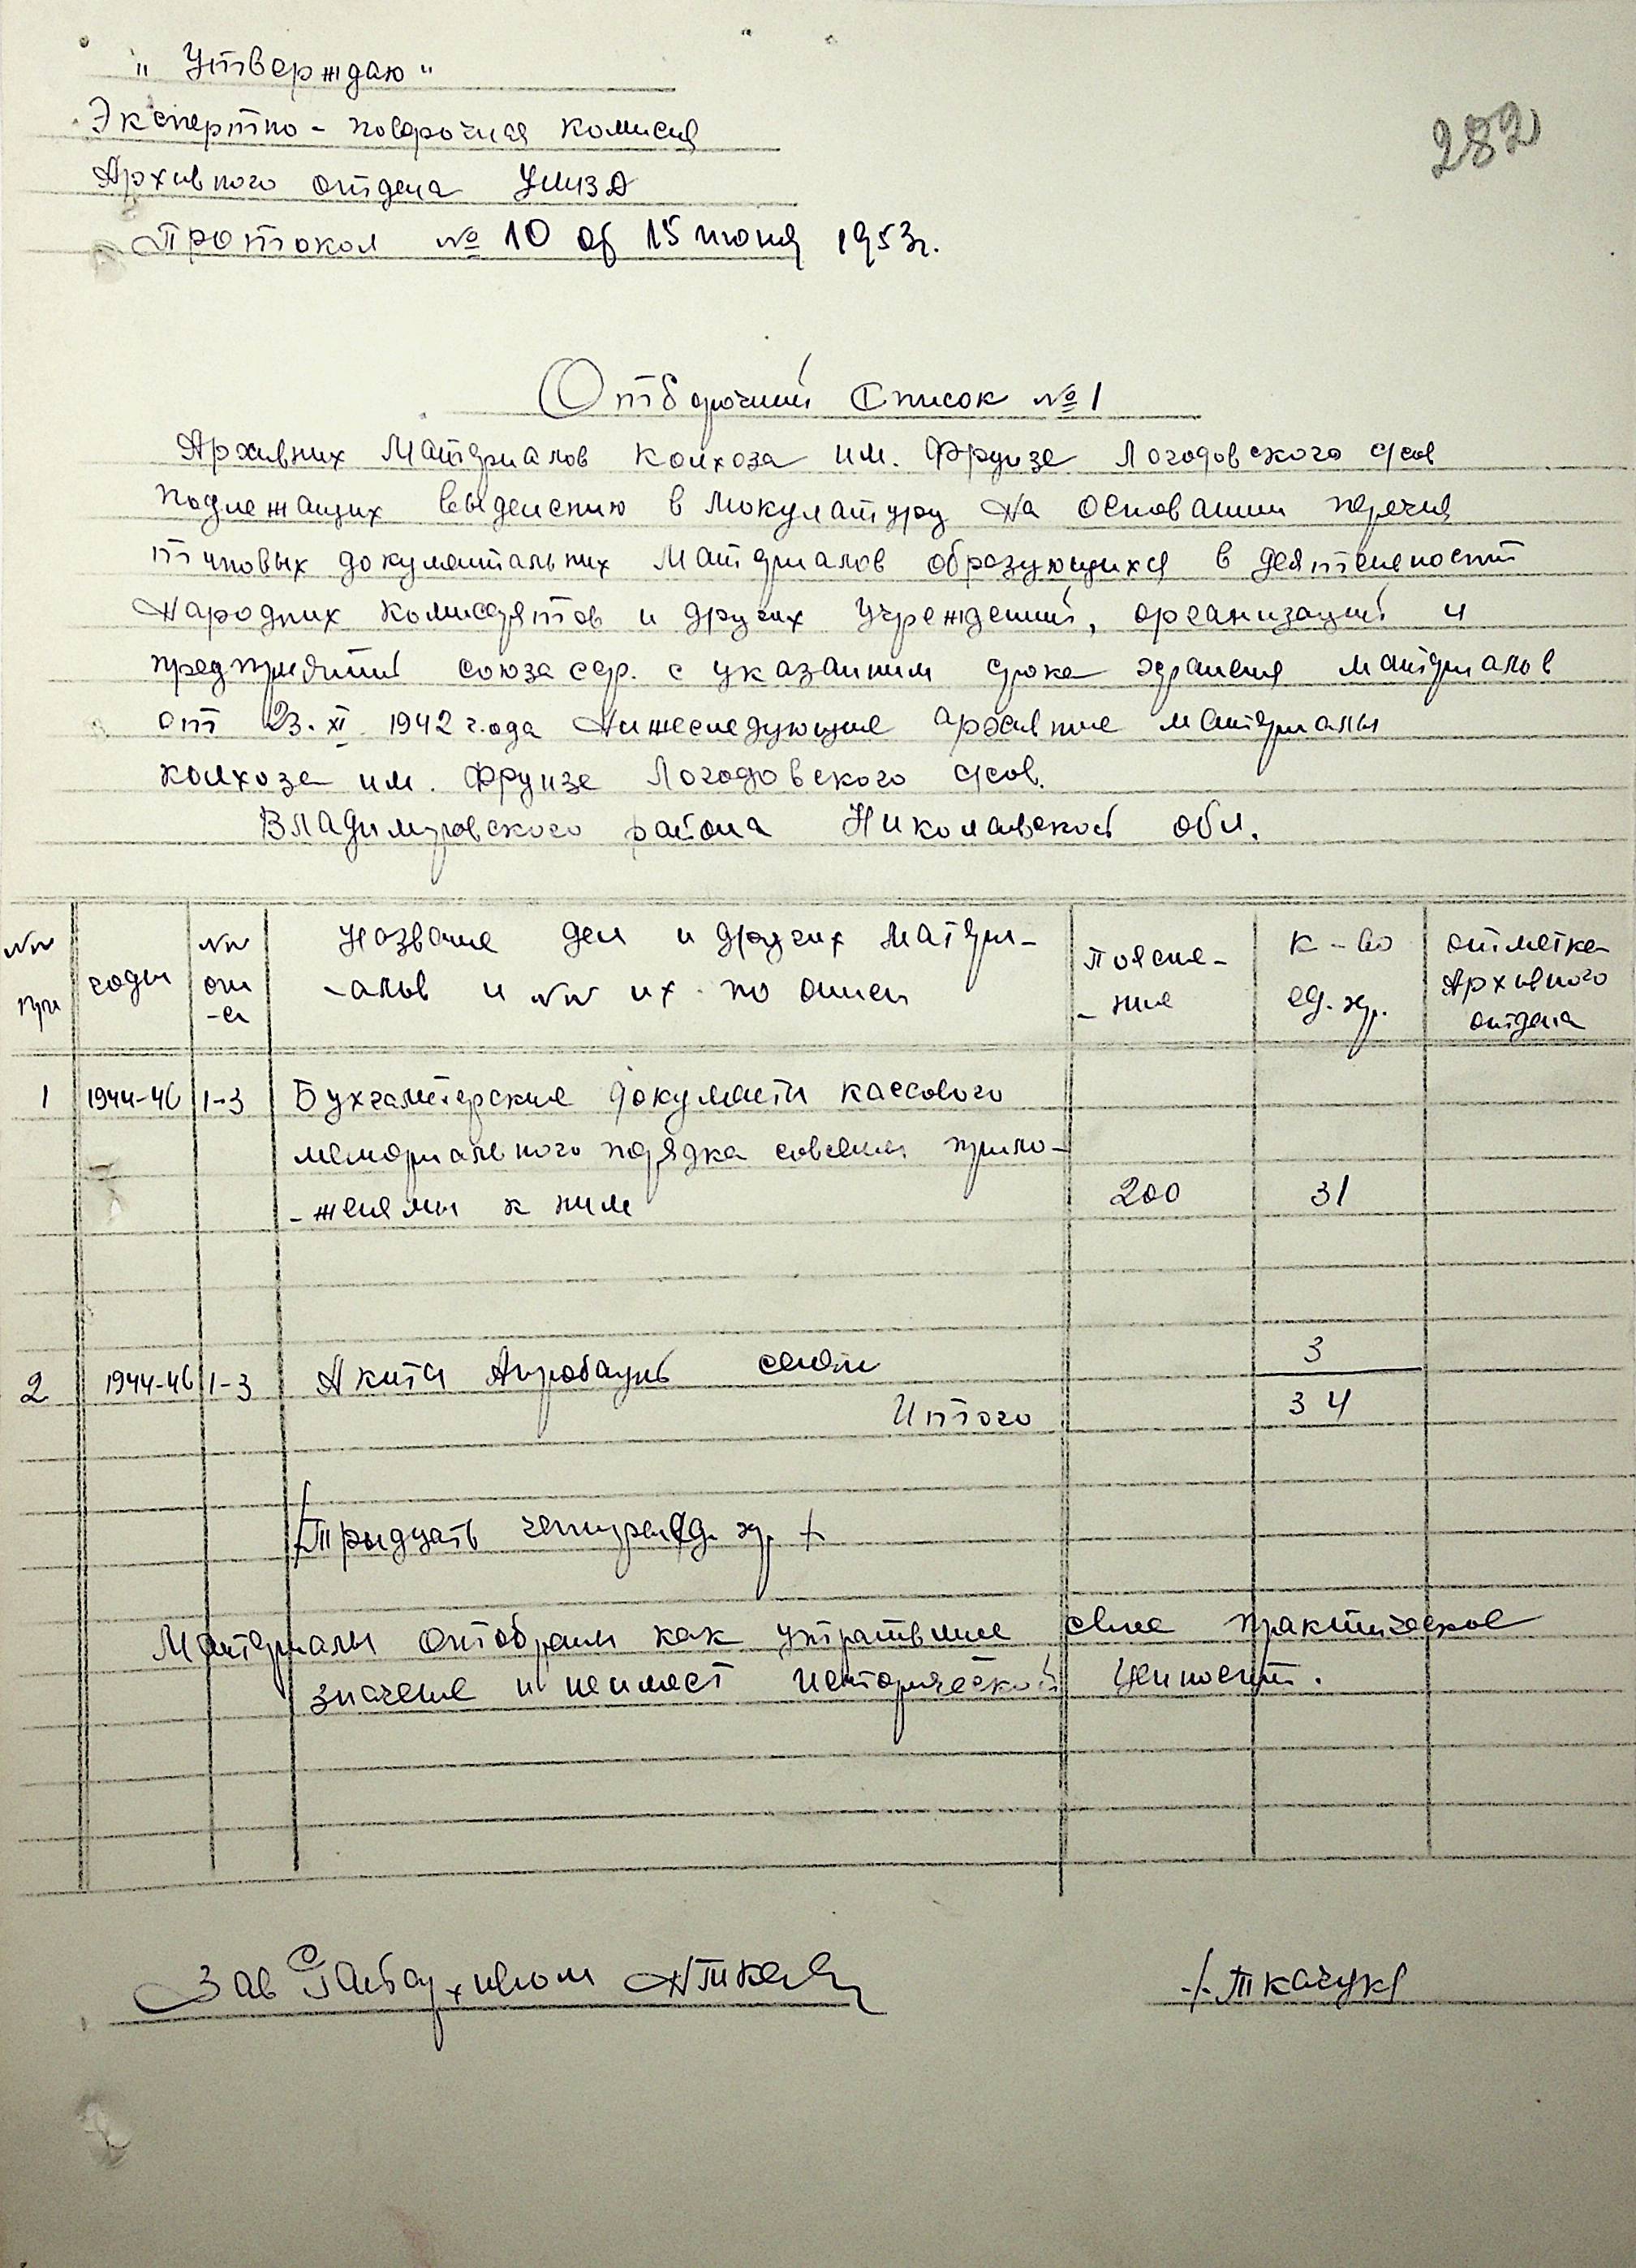 "Утверждаю"
282
Экспертно - поверочная комисия
Архивного отдела УМВД
Протокол № 10 от 15 июня 1953г.
Отборочний Список № 1
Архивних Материалов колхоза им. Фрунзе Логодовского с/сов
подлежащих выделению в Мокулатуру На основании перечня
типовых документальних Материалов образующихся в деятельности
Народних комиссарятов и других Учреждений, организаций и
предприятий союза сср. с указанием срока хранения материалов
от 23. XI 1942 г.ода Нижеследующие архивние материалы
колхоза им. Фрунзе Логодовского с/сов.
Владимировского района Николаевской обл.
№№ п/п
годы
№№ опи-си
Название дел и других матери-
-алов и №№ их по описи
поясне-
- ние
к - во
ед. хр.
отметка
Архивного
отдела
1 1944-46 1-3 Бухгалтерские документи кассового
мемориального порядка совсеми прило-
- женями к ним 200 31
2 1944-46 1-3 Акти 3
Итого 34
/Тридцать четыре ед. хр. /
Материалы отобрани как утратившие свое практическое
значение и неимеет исторической ценности.
Зав /Ткачук/